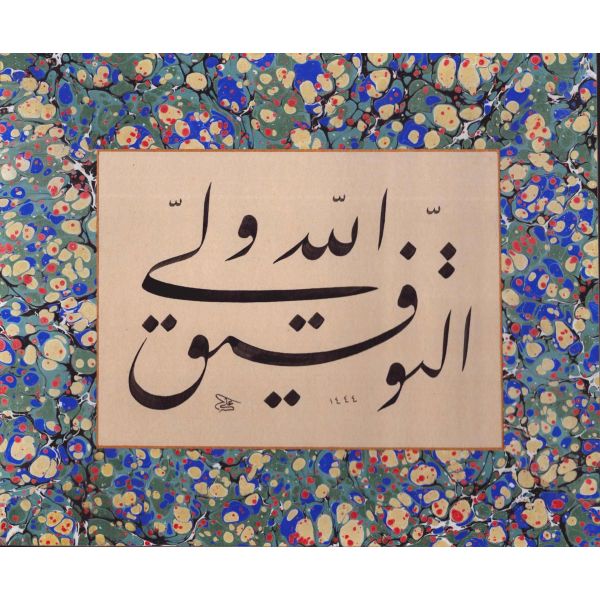 اللّه ولىّ
التّوفيق
١٤٤٤